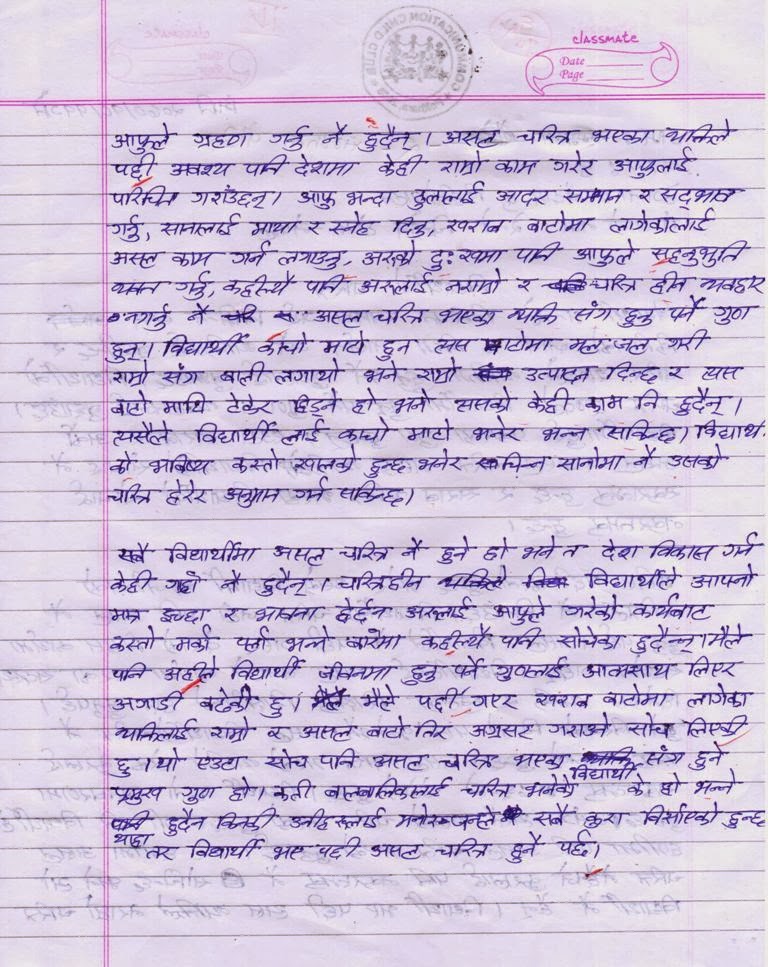 classmate
Date
Page
आफुले ग्रहण गर्नु नै हुदैन् । असल चरित्र भएका व्यक्तिले
पछी अवश्य पनि देशमा केही राम्रो काम गरेर आफुलाई
परिचित गराँउछन् । आफु भन्दा ठुलालाई आदर सम्मान र सद्भाव
गर्नु, सानालाई माया र स्नेह दिनु, खराब बाटोमा लागेकालाई
असल काम गर्न लगाउनु, अरुको दुःखमा पनि आफुले सहनुभुति
व्यक्त गर्नु, कहील्यै पनि अरुलाई नराम्रो र चरित्र हीन व्यवहार
नगर्नु नै असल चरित्र भएका व्यक्ति संग हुनु पर्ने गुण
हुन् । विद्यार्थी काँचो माटो हुन त्यस माटोमा मल जल गरी
राम्रो संग बाली लगायो भने राम्रो उत्पादन दिन्छ र त्यस
बाटो माथि टेकेर हिड्ने हो भने त्यसको केही काम नि हुदैन् ।
त्यसैले विद्यार्थी लाई काचो माटो भनेर भन्न सकिन्छ । विद्यार्थी
को भविष्य कस्तो खालको हुन्छ भनेर चिन्न सानोमा नै उसको
चरित्र हेरेर अनुमान गर्न सकिन्छ ।
सबै विद्यार्थीमा असल चरित्र नै हुने हो भने त देश विकास गर्न
केही गाह्रो नै हुदैन् । चरित्रहीन विद्यार्थीले आफ्नो
मात्र इच्छा र भावना हेर्दछन अरुलाई आफुले गरेको कार्यबाट
कस्तो मर्का पर्छ भन्ने बारेमा कहील्यै पनि सोचेका हुदैन्न् । मैले
पनि अहीले विद्यार्थी जीवनमा हुनु पर्ने गुणलाई आत्मसाथ लिएर
अगाडी बढेकी छु । मैले पछी गएर खराब बाटोमा लागेका
व्यक्तिलाई राम्रो र असल बाटो तिर अग्रसर गराउने सोच लिएकी
छु । यो एउटा सोच पनि असल चरित्र भएका विद्यार्थी संग हुने
प्रमुख गुण हो । कती बालबालिकालाई चरित्र भनेको के हो भन्ने
थाहा हुदैन किनकी उनीहरुलाई मनोरन्जनले सबै कुरा विर्साएको हुन्छ
तर विद्यार्थी भए पछी असल चरित्र हुनै पर्छ ।